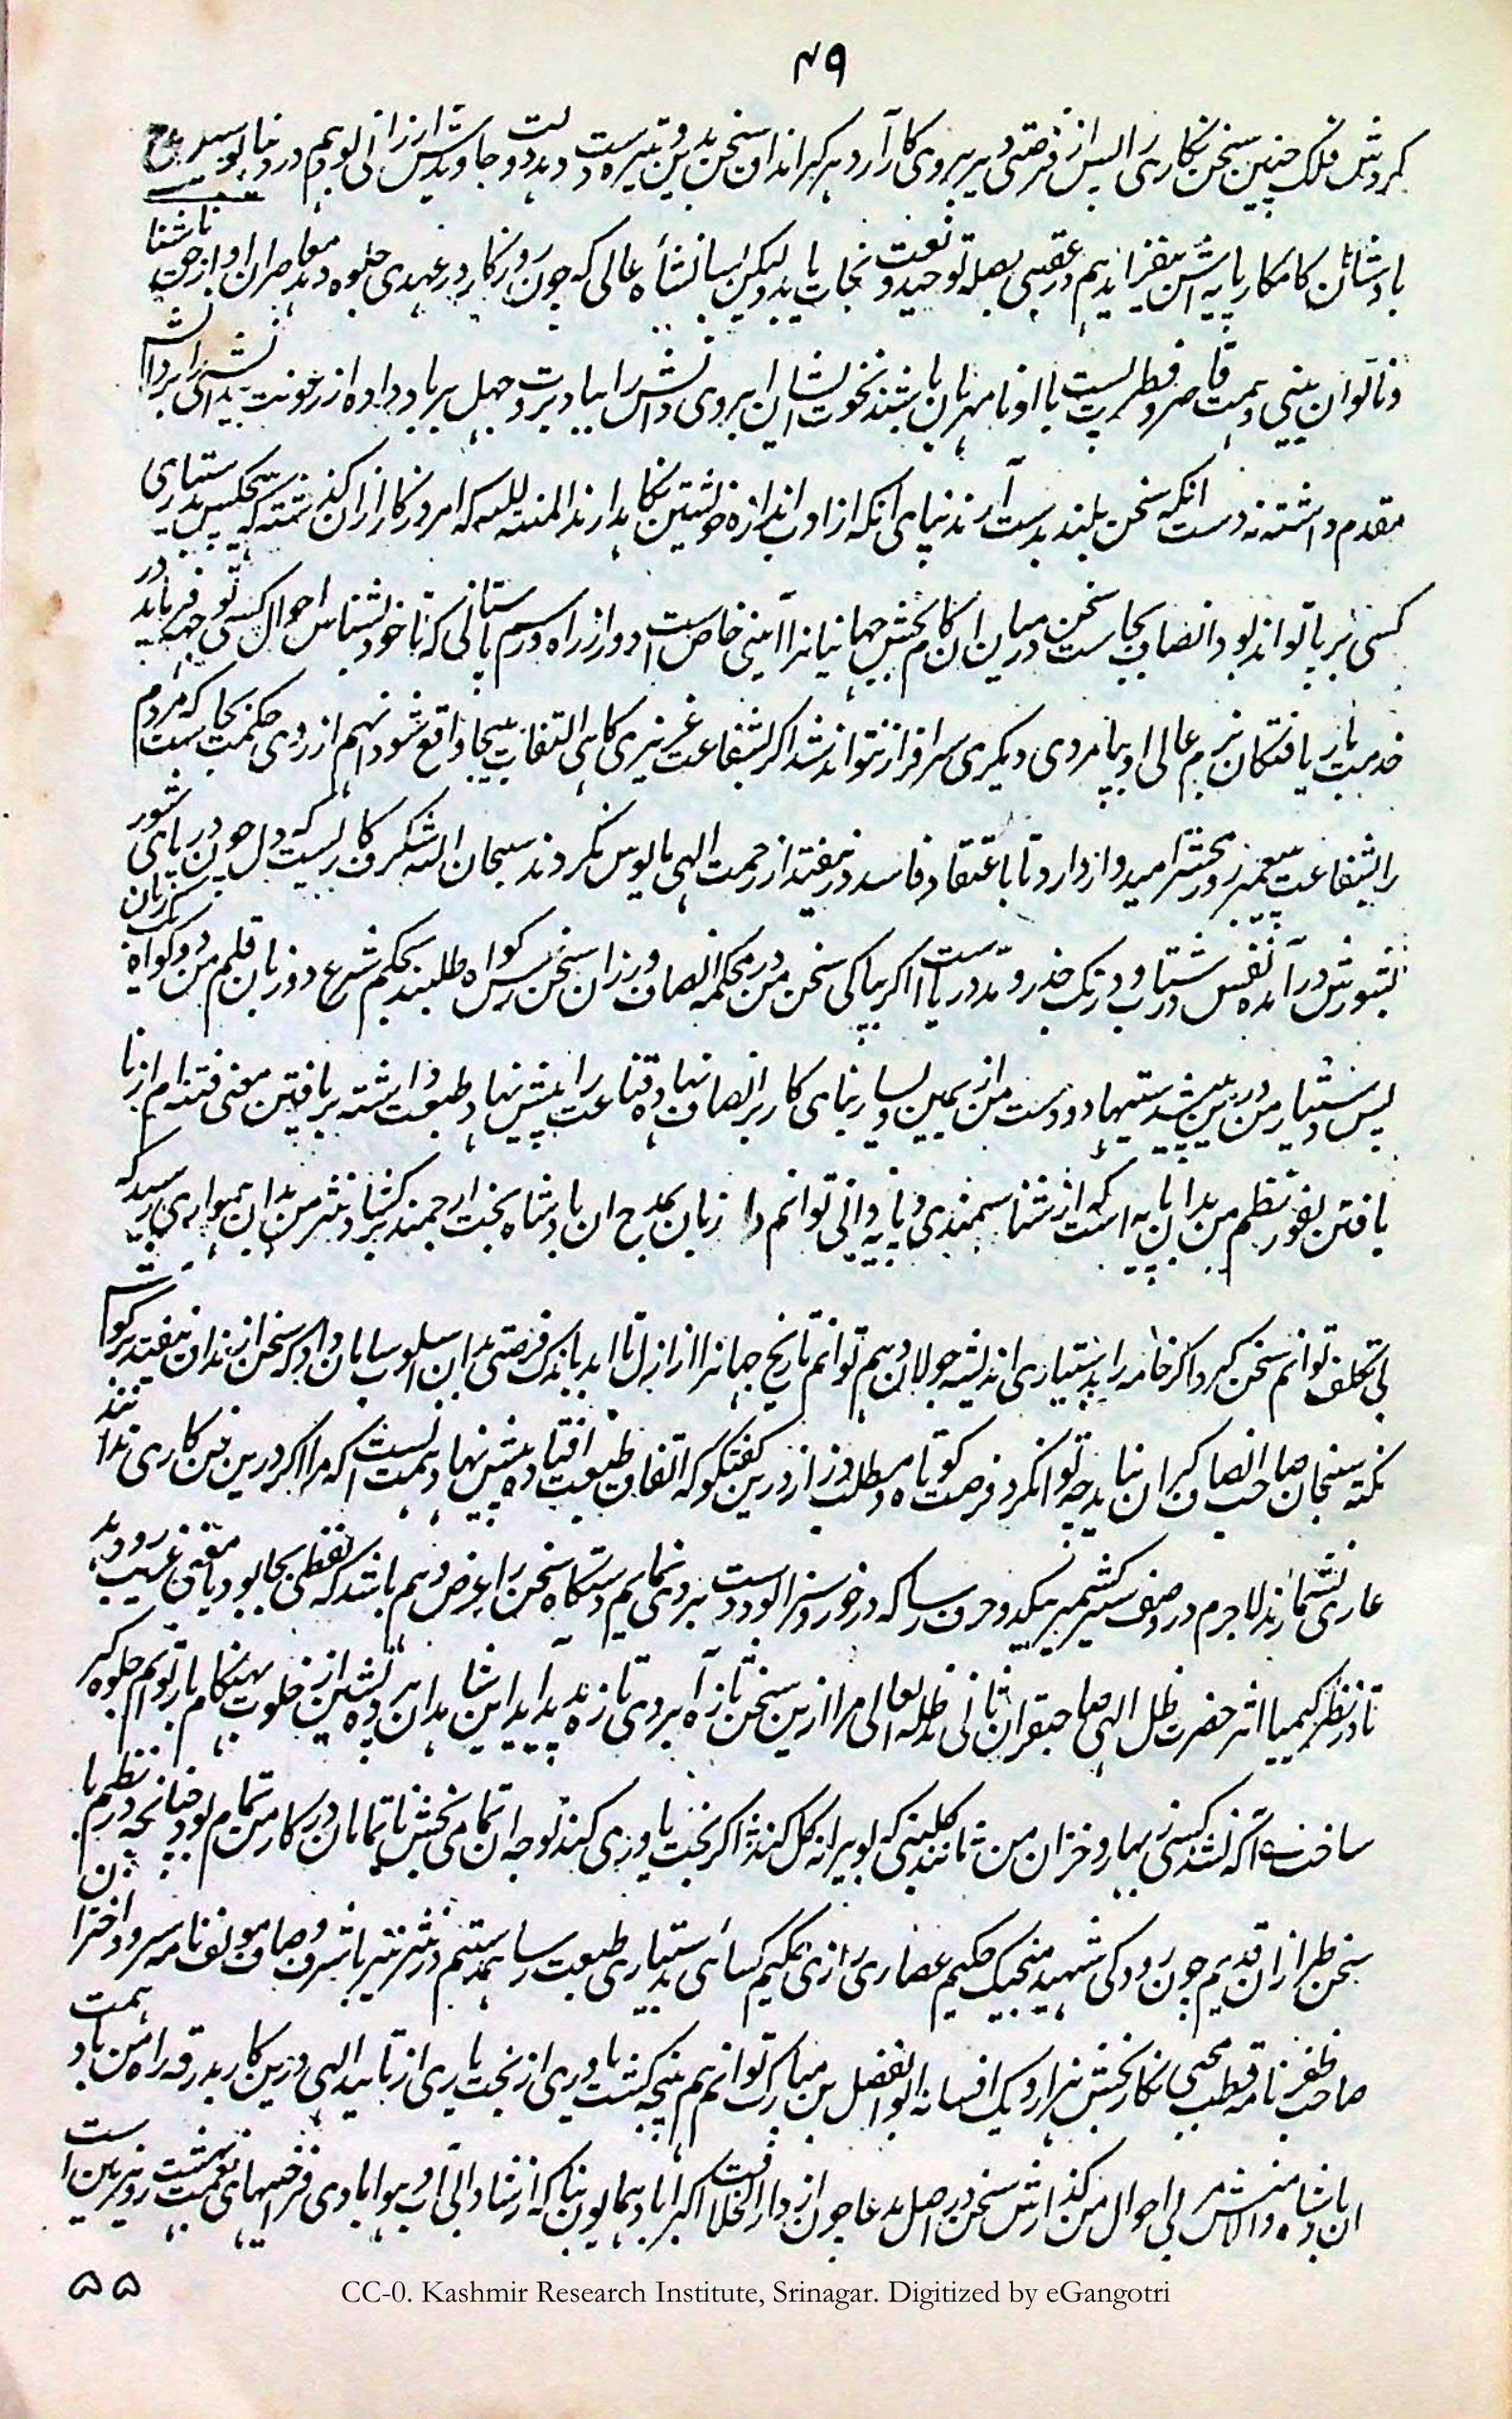 ۴۹
گردش فلک چنین سخن نگاری را پس از فرصتی دیر بروی کار آرد هر کرا اندازه سخن بدین وتیره دست دهد دولت جاویدش ارزانی بود هم در دنیا بوسیله مدح
بادشاهان کامکار پایه اش بیفزاید هم در عقبی بصله توحید و نعت نجات یابد لیکن انشاه عالی که چون روزگار در عهدی جلوه دهد معاصران او از جهت ناشنا
و ناتوان بینی و همت قاصر و فطرت پست با او نامهربان باشند نخوت ایشان ابروی دانش را بباد برد جهل برباد داده از رعونت
مقدم داشته نه دست انکه سخن بلند بدست آرند نه پای انکه از ادب اندازه خویشتن نگاه دارند المنة لله که امروز کار ازان گذشته که هیچکس بدستیاری
کسی بر پا تواند بود انصاف بجاست سخن در میان ان کام بخش جهانیانرا آیینی خاص است دور از راه و رسم باستانی که تا خود بشناس احوال کسی توجه نفرماید در
خدمت بار یافتگان بزم عالی او بپامردی دیگری سرافراز نتواند شد اگر بشفاعت عزیزی گاهی التفات بیجا واقع شود انهم از روی حکمت بجاست که مردم
را بشفاعت پیغمبر روز محشر امیدوار دارد تا باعتقاد فاسد در نیفتد از رحمت الهی مایوس نگردند سبحان الله شگرف کاریست که دل چون دریای شور
بشورش در آمده نفس در شتاب و درنگ جذر و مد دریاست اگر بپاکی سخن من در محکمه انصاف ورزان سخن رس گواه طلبند بحکم شرع دو زبان قلم من دو گواه یک زبان
پس دستیار من درین پیشه دستیها دو دست من از یمین و یسار بنای کار بر انصاف نهاده قناعت را پیش نهاد طبیعت داشته بر یافتن معنی فتنه ام از نا
یافتن بغور نظم من بدان پایه است که از شناسمندی و پایه دانی توانم داد زبان بمدح ان بادشاه بخت ارجمند بر گشاد نثر من بدان همواری رسید که
بی تکلف توانم سخن کرد اگر خامه را بدستیاری اندیشه جولان دهم توانم تاریخ جهانرا از ازل تا ابد باندک فرصتی بدان اسلوب سامان داد که سخن از زندان نیفتد
نکته سنجان صاحب انصاف گران نیاید چه توان کرد فرصت کوتاه و مطلب دراز درین گفتگو که اتفاق طبیعت افتاده پیش نهاد همت انست که مرا اگر درین فن کاری ندا
عاری نشمارند لاجرم در وصف کشمیر یکدو حرف رسا که در خور دسترس اوست بر روی نمایم دستگاه سخن را عرض دهم باشد که لفظی بجا بود یا معنی غریب رو دهد
تا در نظر کیمیا اثر حضرت ظل الهی صاحبقران ثانی مد ظله العالی مرا ازین سخن تازه آبروی تازه پدید آید این شاهدان پرده نشین از خلوت بهنگام بار توانم جلوه گر
ساخت اگر نشد کسی بهار و خزان من تا نند گلبنی که بویرانه گل کند اگر بخت یاوری کند توجه ان تمامی بخش ناتمامان در کار من تمام بود چنانچه در نظم با
سخن طرازان قدیم چون رودکی شهید منجیک حکیم عصاری رازی حکیم کسائی بدستیاری طبیعت رسا همدستم در نثر نیز با شرف وصاف مولف نامه سر و اخترا
صاحب ظفر نامه قطب محیی نگار بخش هزار و یک افسانه ابو الفضل بن مبارک توانم هم پنجه گشت یاوری از بخت یاری از تایید الهی درین کار بدرقه راه من باد همت
ان بادشاه والامنش مربی احوال من گذارش سخن در اصل مدعا چون از دار الخلافت اکبراباد همایون بنا که از شادابی آب و هوا بادی فرخیهای نعمت بهشت روزیین است
۵۵
CC-0. Kashmir Research Institute, Srinagar. Digitized by eGangotri